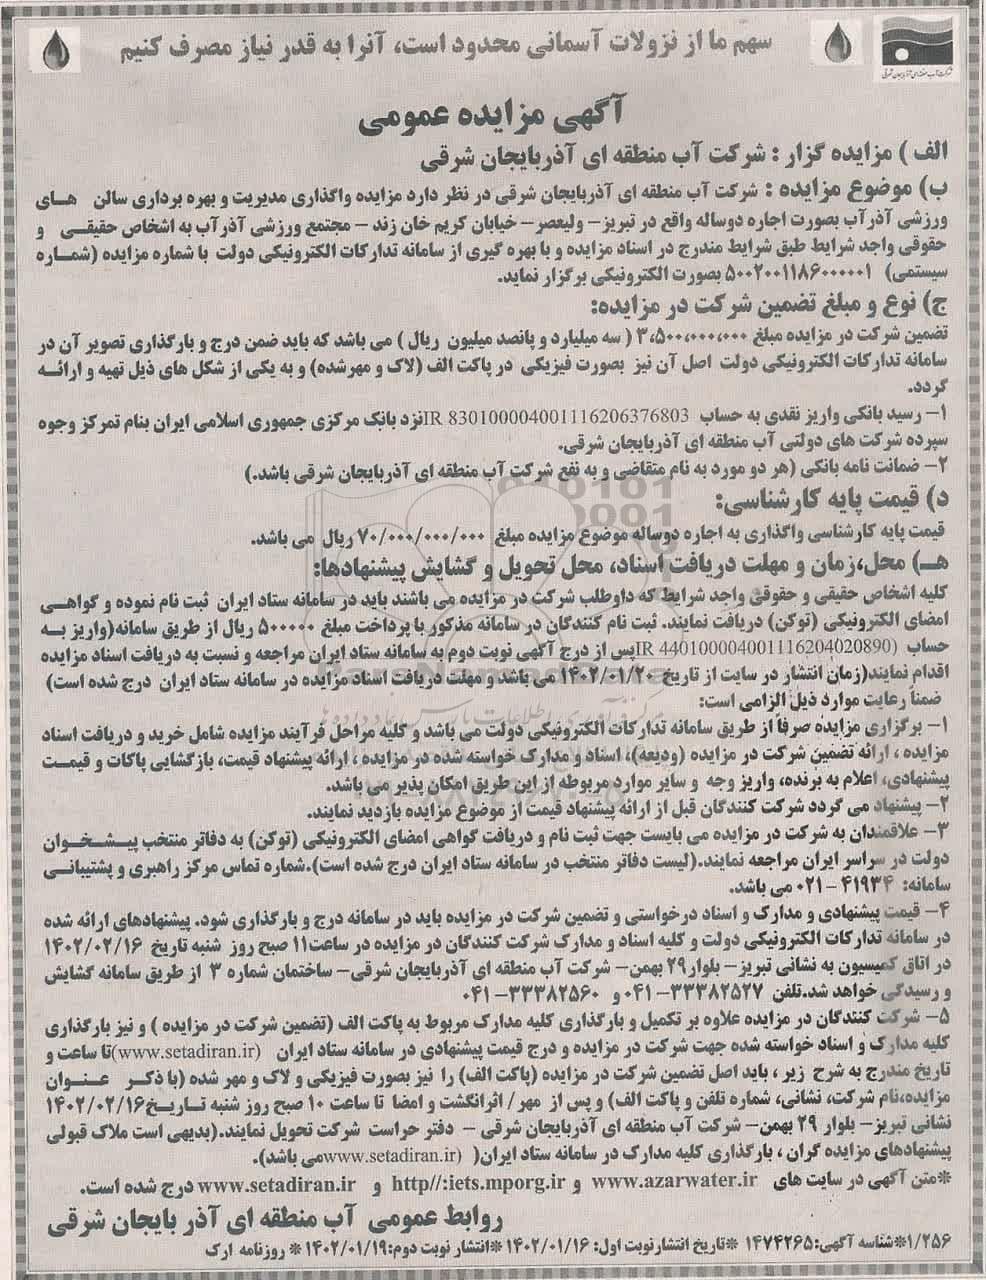 سهم ما از نزولات آسمانی محدود است، آنرا به قدر نیاز مصرف کنیم
شرکت آب منطقه‌ای آذربایجان شرقی
آگهی مزایده عمومی
الف ) مزایده گزار : شرکت آب منطقه ای آذربایجان شرقی
ب) موضوع مزایده : شرکت آب منطقه ای آذربایجان شرقی در نظر دارد مزایده واگذاری مدیریت و بهره برداری سالن های
ورزشی آذرآب بصورت اجاره دوساله واقع در تبریز– ولیعصر– خیابان کریم خان زند – مجتمع ورزشی آذرآب به اشخاص حقیقی و
حقوقی واجد شرایط طبق شرایط مندرج در اسناد مزایده و با بهره گیری از سامانه تدارکات الکترونیکی دولت با شماره مزایده (شماره
سیستمی) ۵۰۰۲۰۰۱۱۸۶۰۰۰۰۰۱ بصورت الکترونیکی برگزار نماید.
ج) نوع و مبلغ تضمین شرکت در مزایده:
تضمین شرکت در مزایده مبلغ ۳،۵۰۰،۰۰۰،۰۰۰ ( سه میلیارد و پانصد میلیون ریال ) می باشد که باید ضمن درج و بارگذاری تصویر آن در
سامانه تدارکات الکترونیکی دولت اصل آن نیز بصورت فیزیکی در پاکت الف (لاک و مهرشده) و به یکی از شکل های ذیل تهیه و ارائه
گردد.
۱– رسید بانکی واریز نقدی به حساب IR 830100004001116206376803نزد بانک مرکزی جمهوری اسلامی ایران بنام تمرکز وجوه
سپرده شرکت های دولتی آب منطقه ای آذربایجان شرقی.
۲– ضمانت نامه بانکی (هر دو مورد به نام متقاضی و به نفع شرکت آب منطقه ای آذربایجان شرقی باشد.)
د) قیمت پایه کارشناسی:
قیمت پایه کارشناسی واگذاری به اجاره دوساله موضوع مزایده مبلغ ۷۰/۰۰۰/۰۰۰/۰۰۰ ریال می باشد.
هـ) محل،زمان و مهلت دریافت اسناد، محل تحویل و گشایش پیشنهادها:
کلیه اشخاص حقیقی و حقوقی واجد شرایط که داوطلب شرکت در مزایده می باشند باید در سامانه ستاد ایران ثبت نام نموده و گواهی
امضای الکترونیکی (توکن) دریافت نمایند. ثبت نام کنندگان در سامانه مذکور با پرداخت مبلغ ۵۰۰۰۰۰ ریال از طریق سامانه(واریز به
حساب IR 440100004001116204020890)پس از درج آگهی نوبت دوم به سامانه ستاد ایران مراجعه و نسبت به دریافت اسناد مزایده
اقدام نمایند(زمان انتشار در سایت از تاریخ ۱۴۰۲/۰۱/۲۰ می باشد و مهلت دریافت اسناد مزایده در سامانه ستاد ایران درج شده است)
ضمناً رعایت موارد ذیل الزامی است:
۱– برگزاری مزایده صرفاً از طریق سامانه تدارکات الکترونیکی دولت می باشد و کلیه مراحل فرآیند مزایده شامل خرید و دریافت اسناد
مزایده ، ارائه تضمین شرکت در مزایده (ودیعه)، اسناد و مدارک خواسته شده در مزایده ، ارائه پیشنهاد قیمت، بازگشایی پاکات و قیمت
پیشنهادی، اعلام به برنده، واریز وجه و سایر موارد مربوطه از این طریق امکان پذیر می باشد.
۲– پیشنهاد می گردد شرکت کنندگان قبل از ارائه پیشنهاد قیمت از موضوع مزایده بازدید نمایند.
۳– علاقمندان به شرکت در مزایده می بایست جهت ثبت نام و دریافت گواهی امضای الکترونیکی (توکن) به دفاتر منتخب پیشخوان
دولت در سراسر ایران مراجعه نمایند.(لیست دفاتر منتخب در سامانه ستاد ایران درج شده است).شماره تماس مرکز راهبری و پشتیبانی
سامانه: ۴۱۹۳۴ –۰۲۱ می باشد.
۴– قیمت پیشنهادی و مدارک و اسناد درخواستی و تضمین شرکت در مزایده باید در سامانه درج و بارگذاری شود. پیشنهادهای ارائه شده
در سامانه تدارکات الکترونیکی دولت و کلیه اسناد و مدارک شرکت کنندگان در مزایده در ساعت۱۱ صبح روز شنبه تاریخ ۱۴۰۲/۰۲/۱۶
در اتاق کمیسیون به نشانی تبریز– بلوار۲۹ بهمن– شرکت آب منطقه ای آذربایجان شرقی– ساختمان شماره ۳ از طریق سامانه گشایش
و رسیدگی خواهد شد.تلفن ۳۳۳۸۲۵۲۷–۰۴۱ و ۳۳۳۸۲۵۶۰–۰۴۱
۵– شرکت کنندگان در مزایده علاوه بر تکمیل و بارگذاری کلیه مدارک مربوط به پاکت الف (تضمین شرکت در مزایده ) و نیز بارگذاری
کلیه مدارک و اسناد خواسته شده جهت شرکت در مزایده و درج قیمت پیشنهادی در سامانه ستاد ایران (www.setadiran.ir)تا ساعت و
تاریخ مندرج به شرح زیر ، باید اصل تضمین شرکت در مزایده (پاکت الف) را نیز بصورت فیزیکی و لاک و مهر شده (با ذکر عنوان
مزایده،نام شرکت، نشانی، شماره تلفن و پاکت الف) و پس از مهر/ اثرانگشت و امضا تا ساعت ۱۰ صبح روز شنبه تاریخ۱۴۰۲/۰۲/۱۶
نشانی تبریز– بلوار ۲۹ بهمن– شرکت آب منطقه ای آذربایجان شرقی – دفتر حراست شرکت تحویل نمایند.(بدیهی است ملاک قبولی
پیشنهادهای مزایده گران ، بارگذاری کلیه مدارک در سامانه ستاد ایران( (www.setadiran.irمی باشد).
*متن آگهی در سایت های www.azarwater.ir و http//:iets.mporg.ir و www.setadiran.ir درج شده است.
روابط عمومی آب منطقه ای آذربایجان شرقی
۱/۲۵۶*شناسه آگهی:۱۴۷۴۲۶۵ *تاریخ انتشارنوبت اول: ۱۴۰۲/۰۱/۱۶ *انتشار نوبت دوم:۱۴۰۲/۰۱/۱۹ * روزنامه ارک